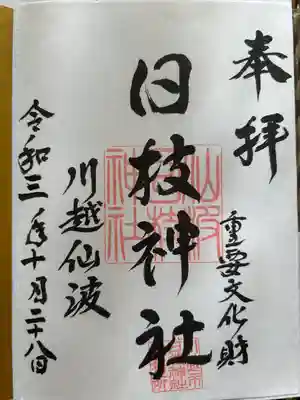 奉拝
重要文化財
日枝神社
川越仙波
令和三年十月二十八日
仙波日枝神社